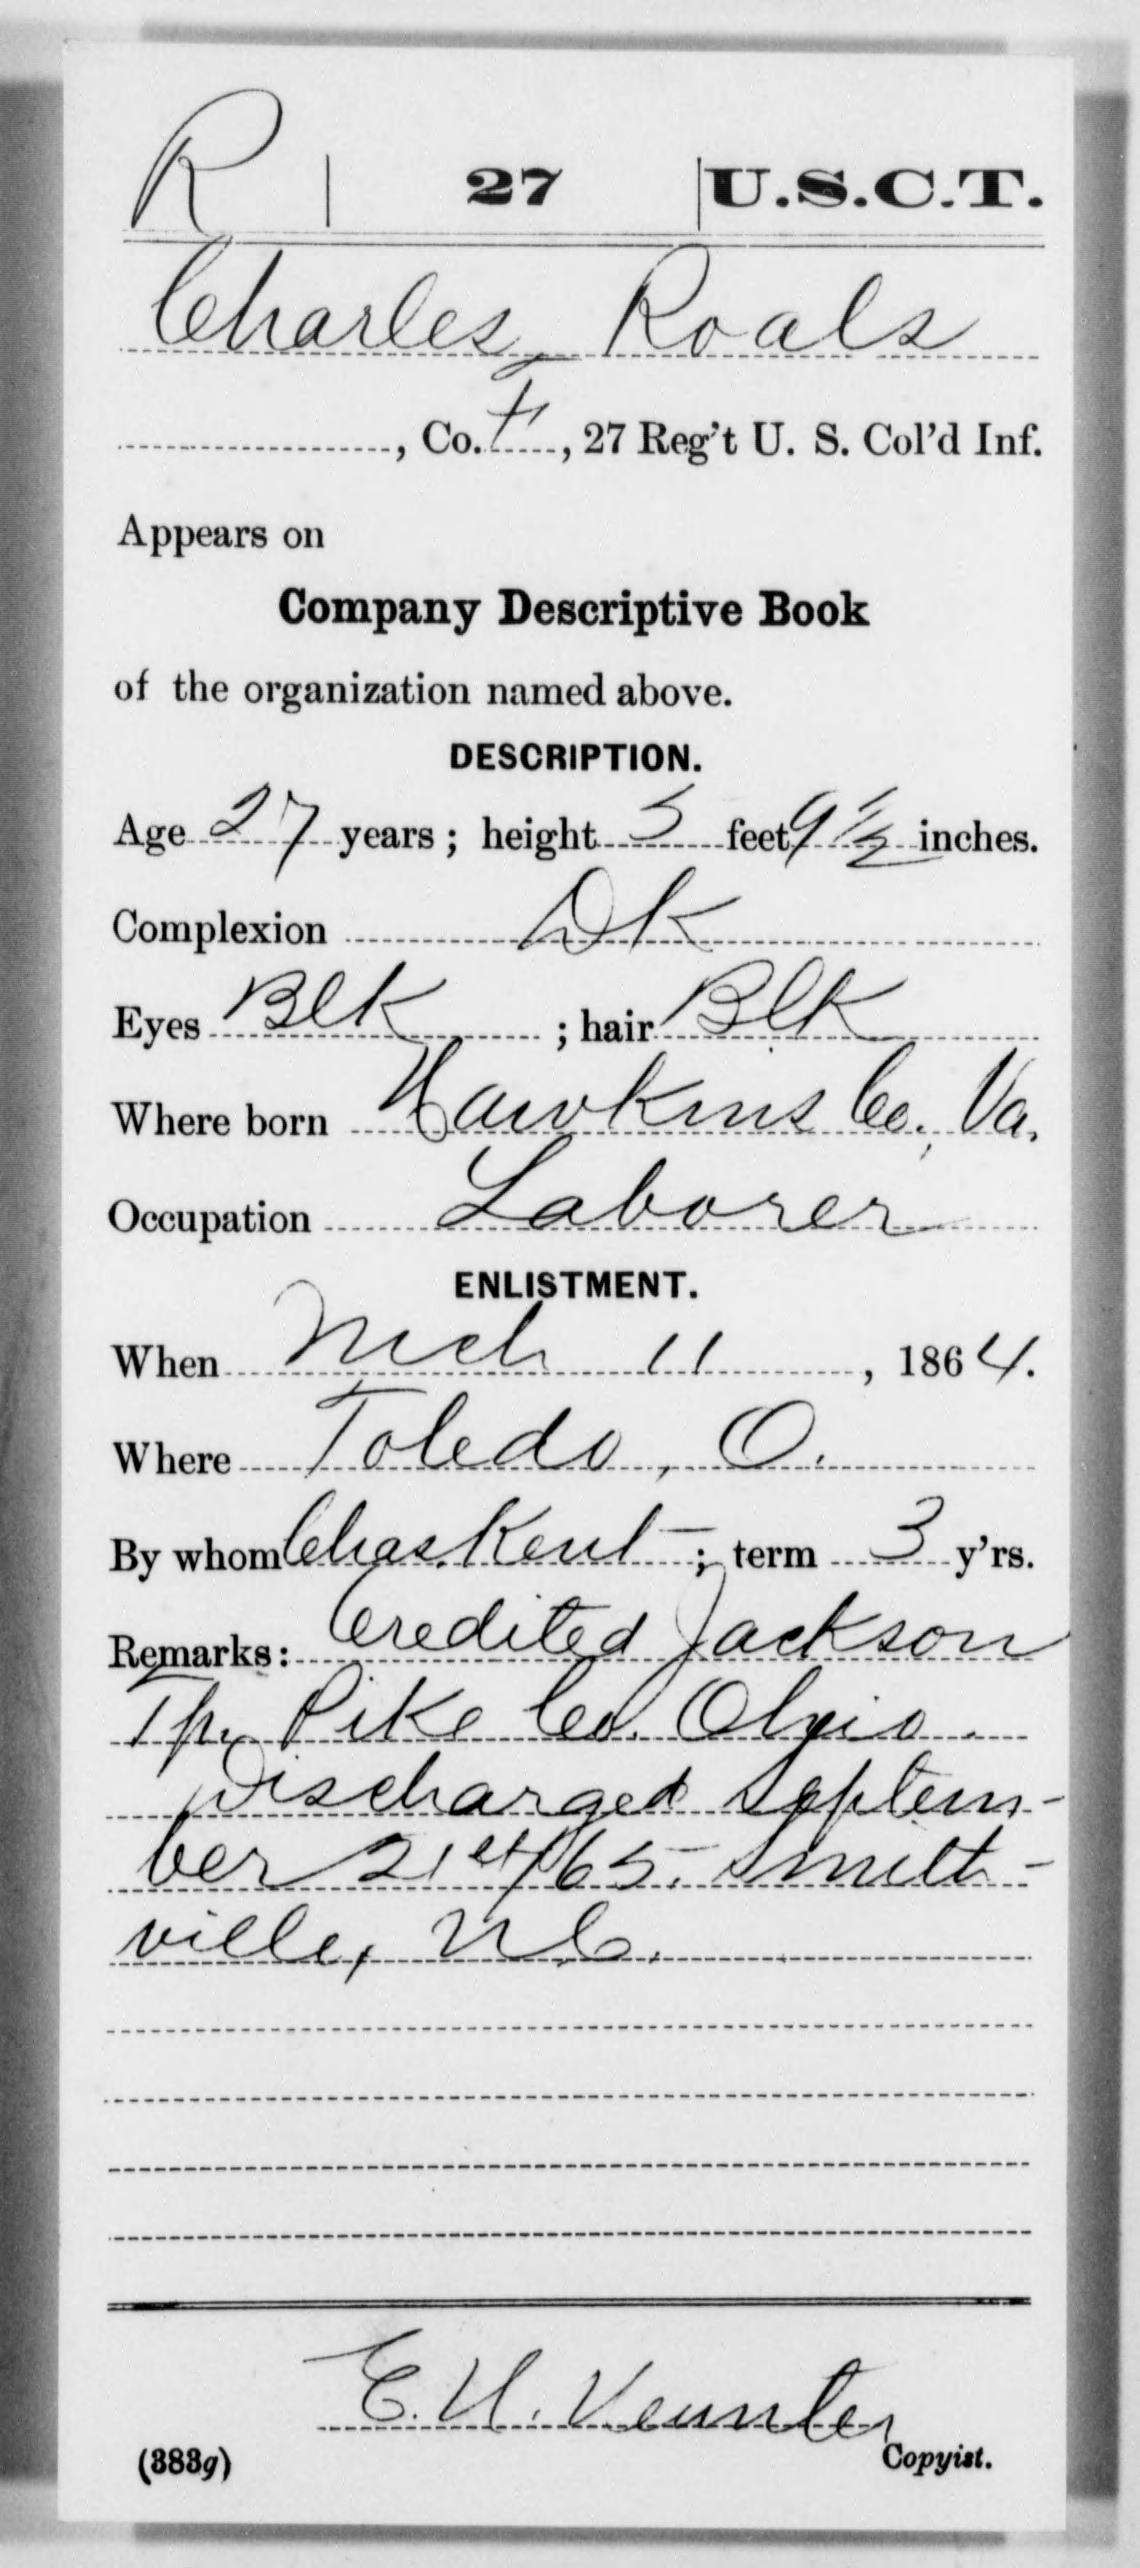 R | 27 | U.S.C.T.
Charles, Roals
, Co. F, 27 Reg't U. S. Col'd Inf.
Appears on
Company Descriptive Book
of the organization named above.
DESCRIPTION.
Age 27 years; height 5 feet 9 1/2 inches.
Complexion Dk
Eyes Blk ; hair Blk
Where born Hawkins Co., Va.
Occupation Laborer
ENLISTMENT.
When Mch 11, 1864.
Where Toledo, O.
By whom Chas. Kent ; term 3 y'rs.
Remarks: Credited Jackson
Tp. Pike Co. Ohio.
Discharged Septem-
ber 21st/65. Smith-
ville, N C.
E. H.
Copyist.
(383g)